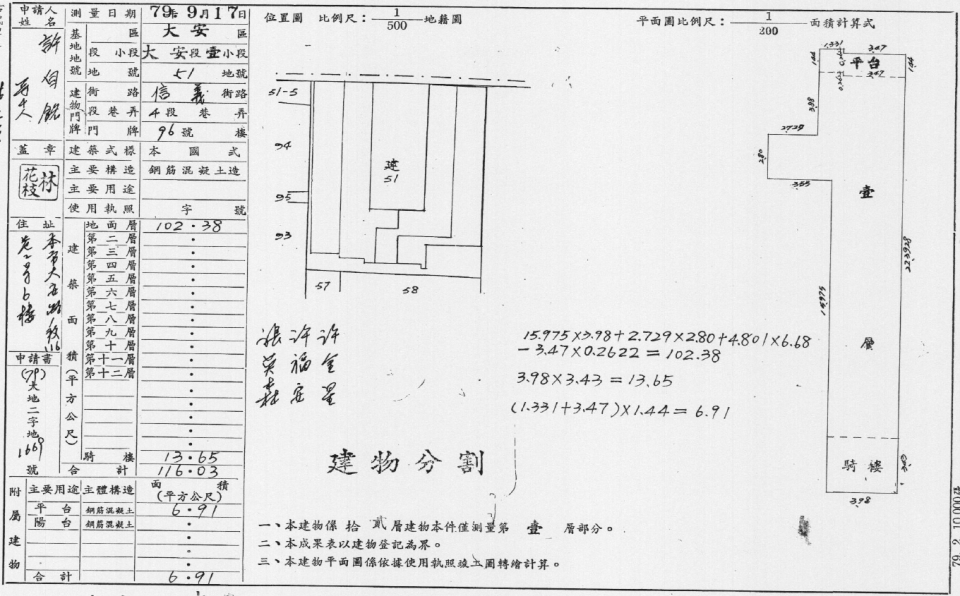 申請人姓名
許伯銘
等人
測量日期 79年9月17日
基地地號 大安 區
段小段 大安段壹小段
地號 51 地號
建物門牌 街路 信義 街路
段巷弄 4段 巷 弄
門牌 96號 樓
蓋章
林花枝
建築式樣 本國式
主要構造 鋼筋混凝土造
主要用途
使用執照 字 號
住址
建築面積(平方公尺)
地面層 102.38
第二層
第三層
第四層
第五層
第六層
第七層
第八層
第九層
第十層
第十一層
第十二層
騎樓 13.65
合計 116.03
申請書
(79)
大地二字地
1669
號
附屬建物
主要用途 主體構造 面積(平方公尺)
平台 鋼筋混凝土 6.91
陽台 鋼筋混凝土
合計 6.91
位置圖 比例尺:1/500 地籍圖
51-5
94
95
93
建
51
57
58
張 許 許
福 全
森 安 星
建物分割
一、本建物係拾貳層建物本件僅測量第 壹 層部分。
二、本成果表以建物登記為界。
三、本建物平面圖係依據使用執照竣工圖轉繪計算。
平面圖比例尺:1/200 面積計算式
1.331
3.47
平台
3.47
3.98
2.729
2.80
壹
22.3928
15.975
層
騎樓
3.98
15.975×3.98+2.729×2.80+4.801×6.68
-3.47×0.2622=102.38
3.98×3.43=13.65
(1.331+3.47)×1.44=6.91
79. 2. 10,000